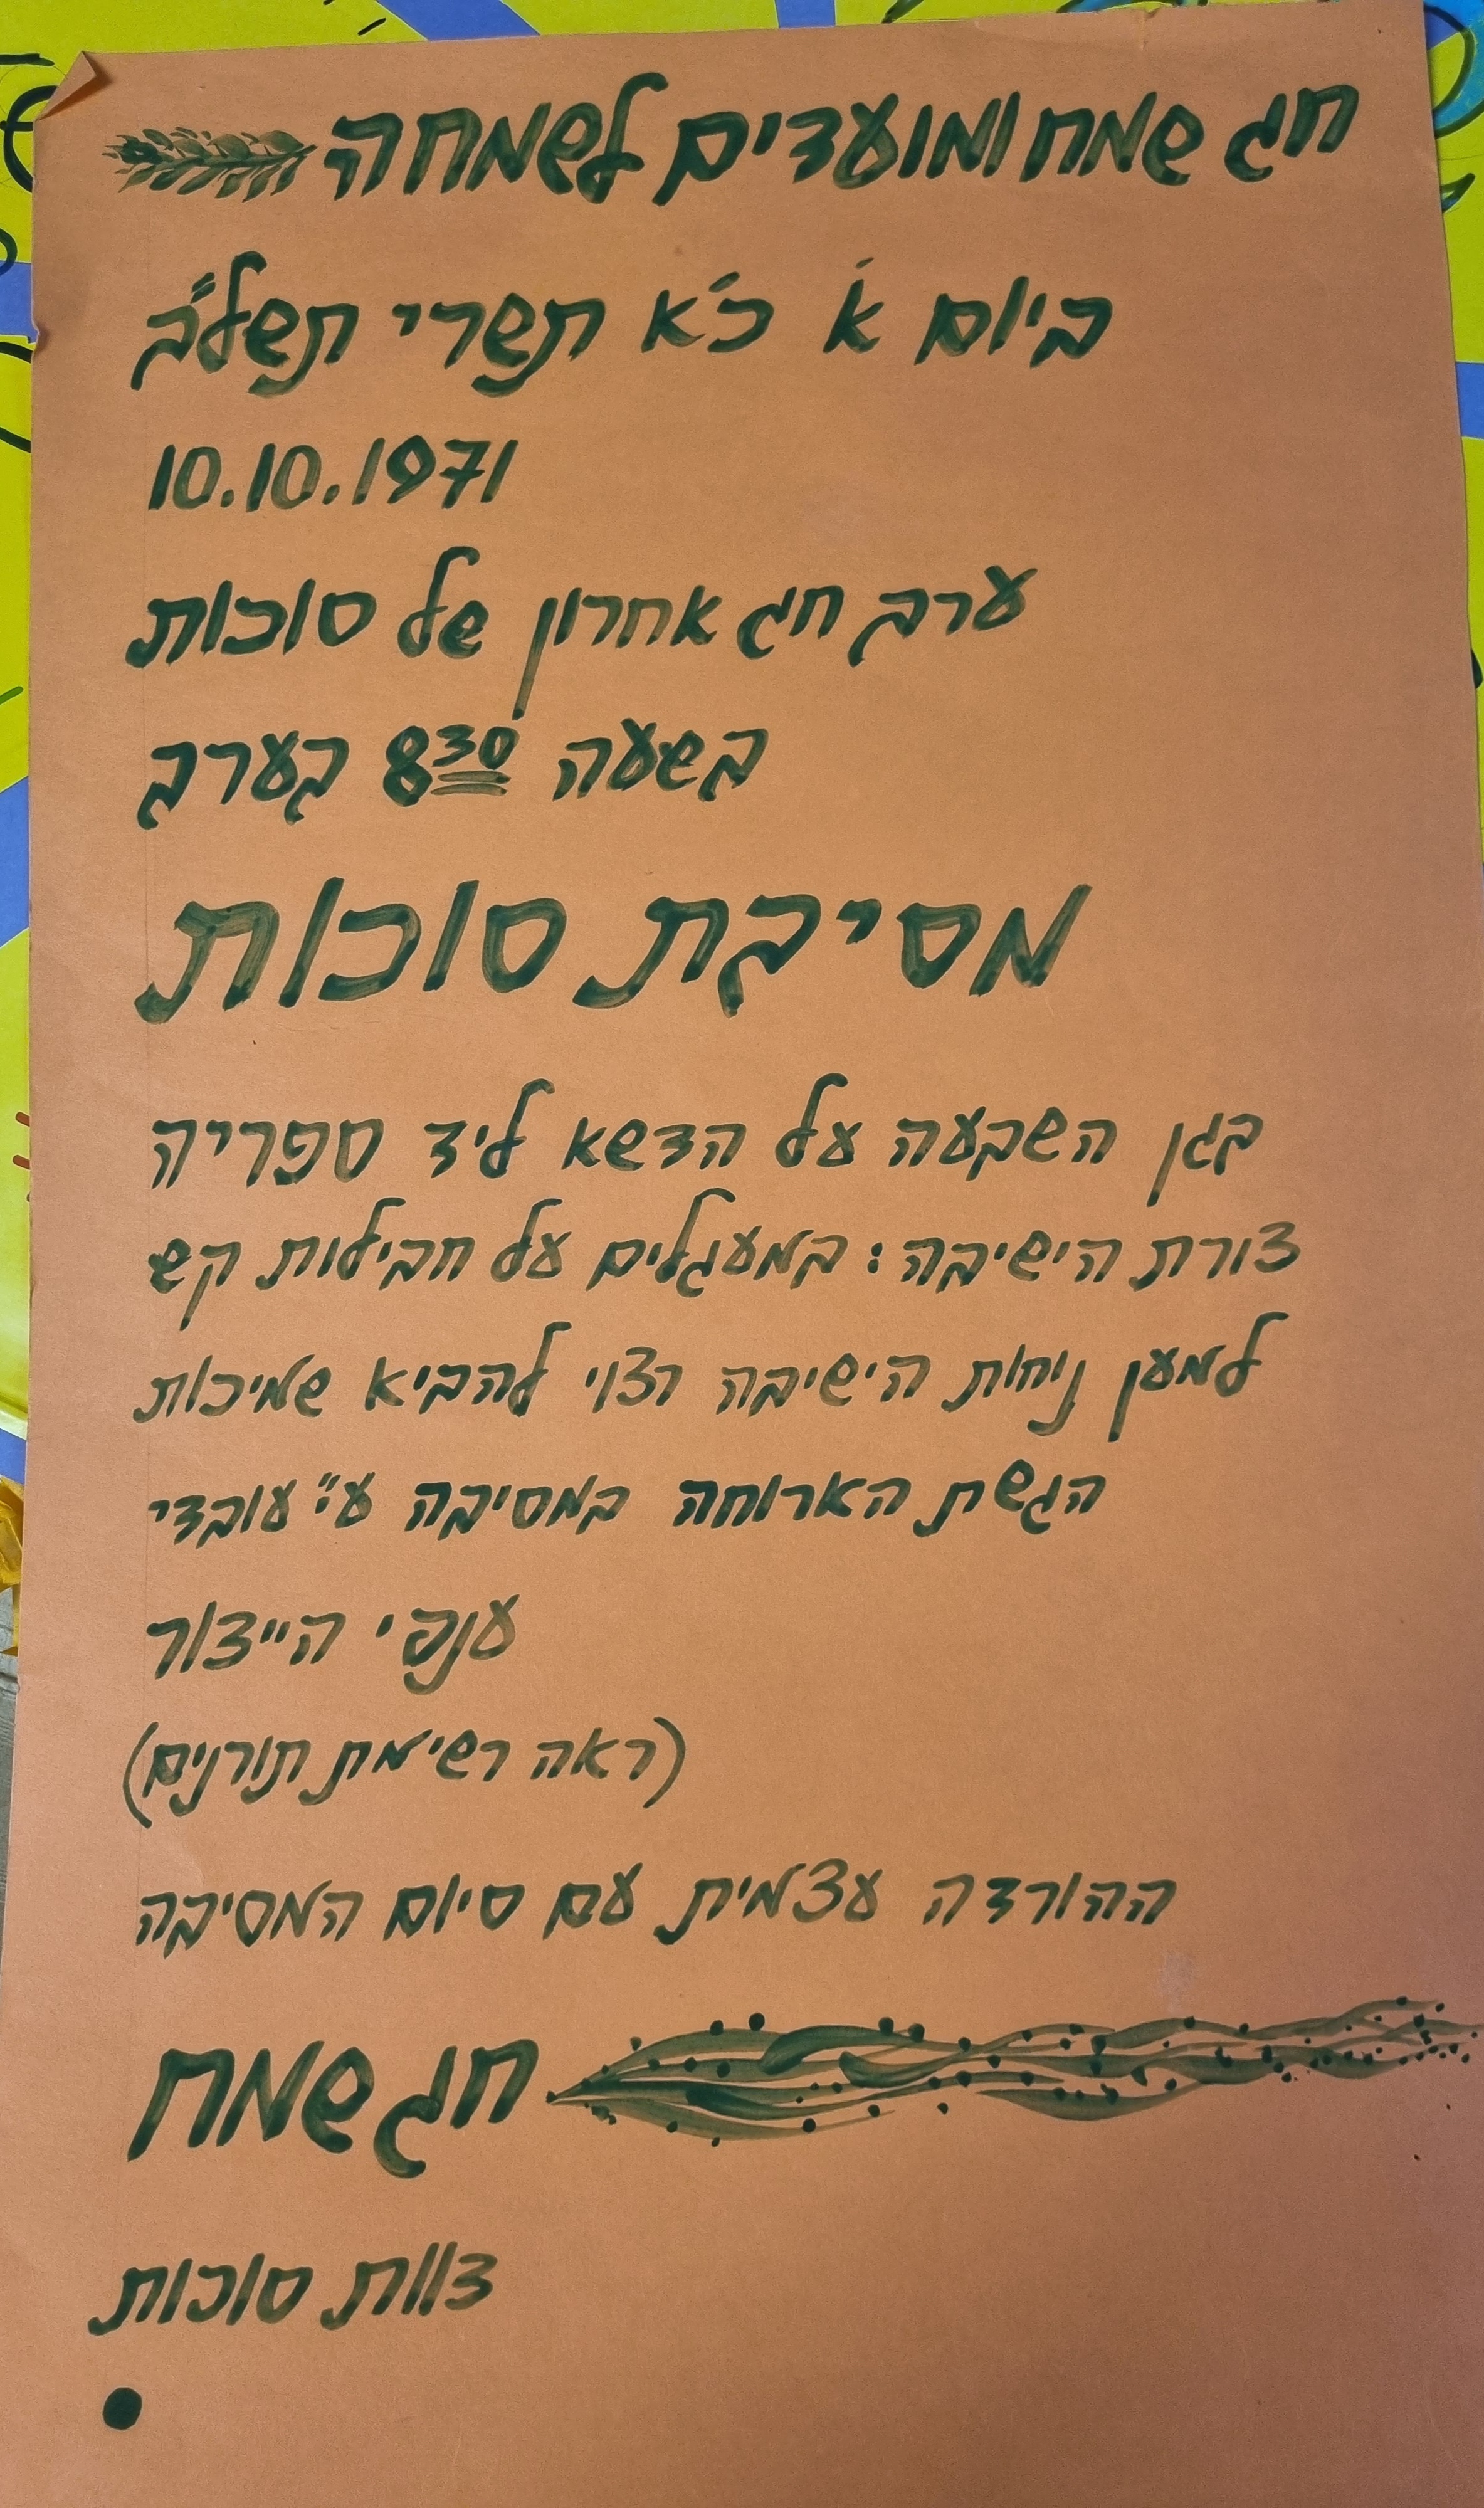 חג שמח ומועדים לשמחה
ביום א' כ"א תשרי תשל"ב
10.10.1971
ערב חג אחרון של סוכות
בשעה 8³⁰ בערב
מסיבת סוכות
בגן השבעה על הדשא ליד ספריה
צורת הישיבה: במעגלים על חבילות קש
למען נוחות הישיבה רצוי להביא שמיכות
הגשת הארוחה במסיבה ע"י עובדי
ענפי הייצור
(ראה רשימת תורנים)
ההורדה עצמית עם סיום המסיבה
חג שמח
צוות סוכות